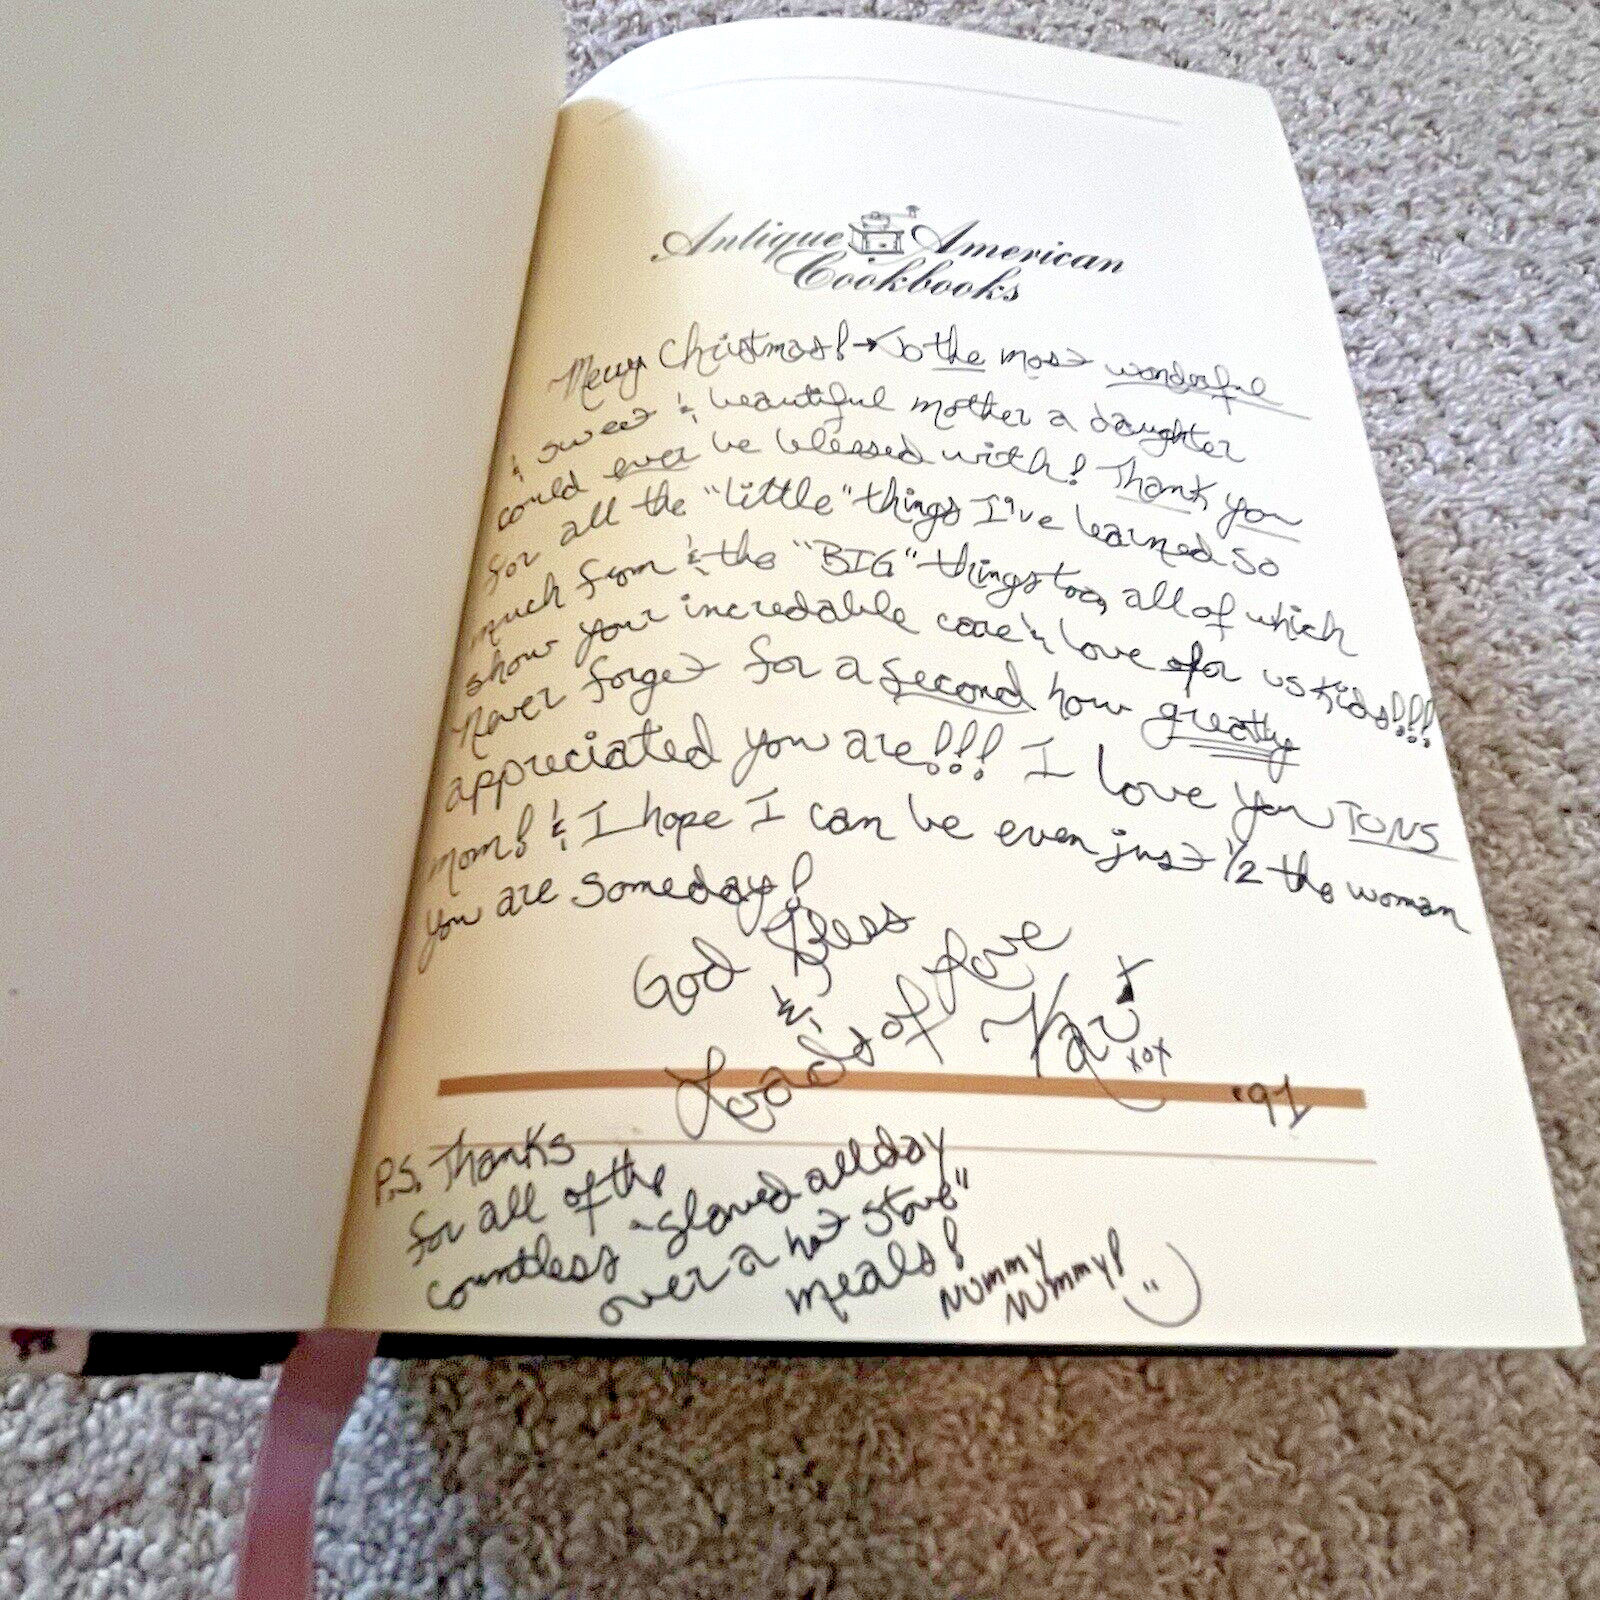 Antique American
Cookbooks
Merry Christmas! → To the most wonderful
& sweet & beautiful mother a daughter
could ever be blessed with! Thank you
for all the "little" things I've learned so
much from & the "BIG" things too, all of which
show your incredable care & love for us kids!!!
Never forget for a second how greatly
appreciated you are!!! I love you TONS
mom! & I hope I can be even just 1/2 the woman
you are someday!
God Bless
W/
Loads of Love
Kari
xox
'91
P.S. Thanks
for all of the
countless "slaved all day
over a hot stove"
meals!
NUMMY
NUMMY!